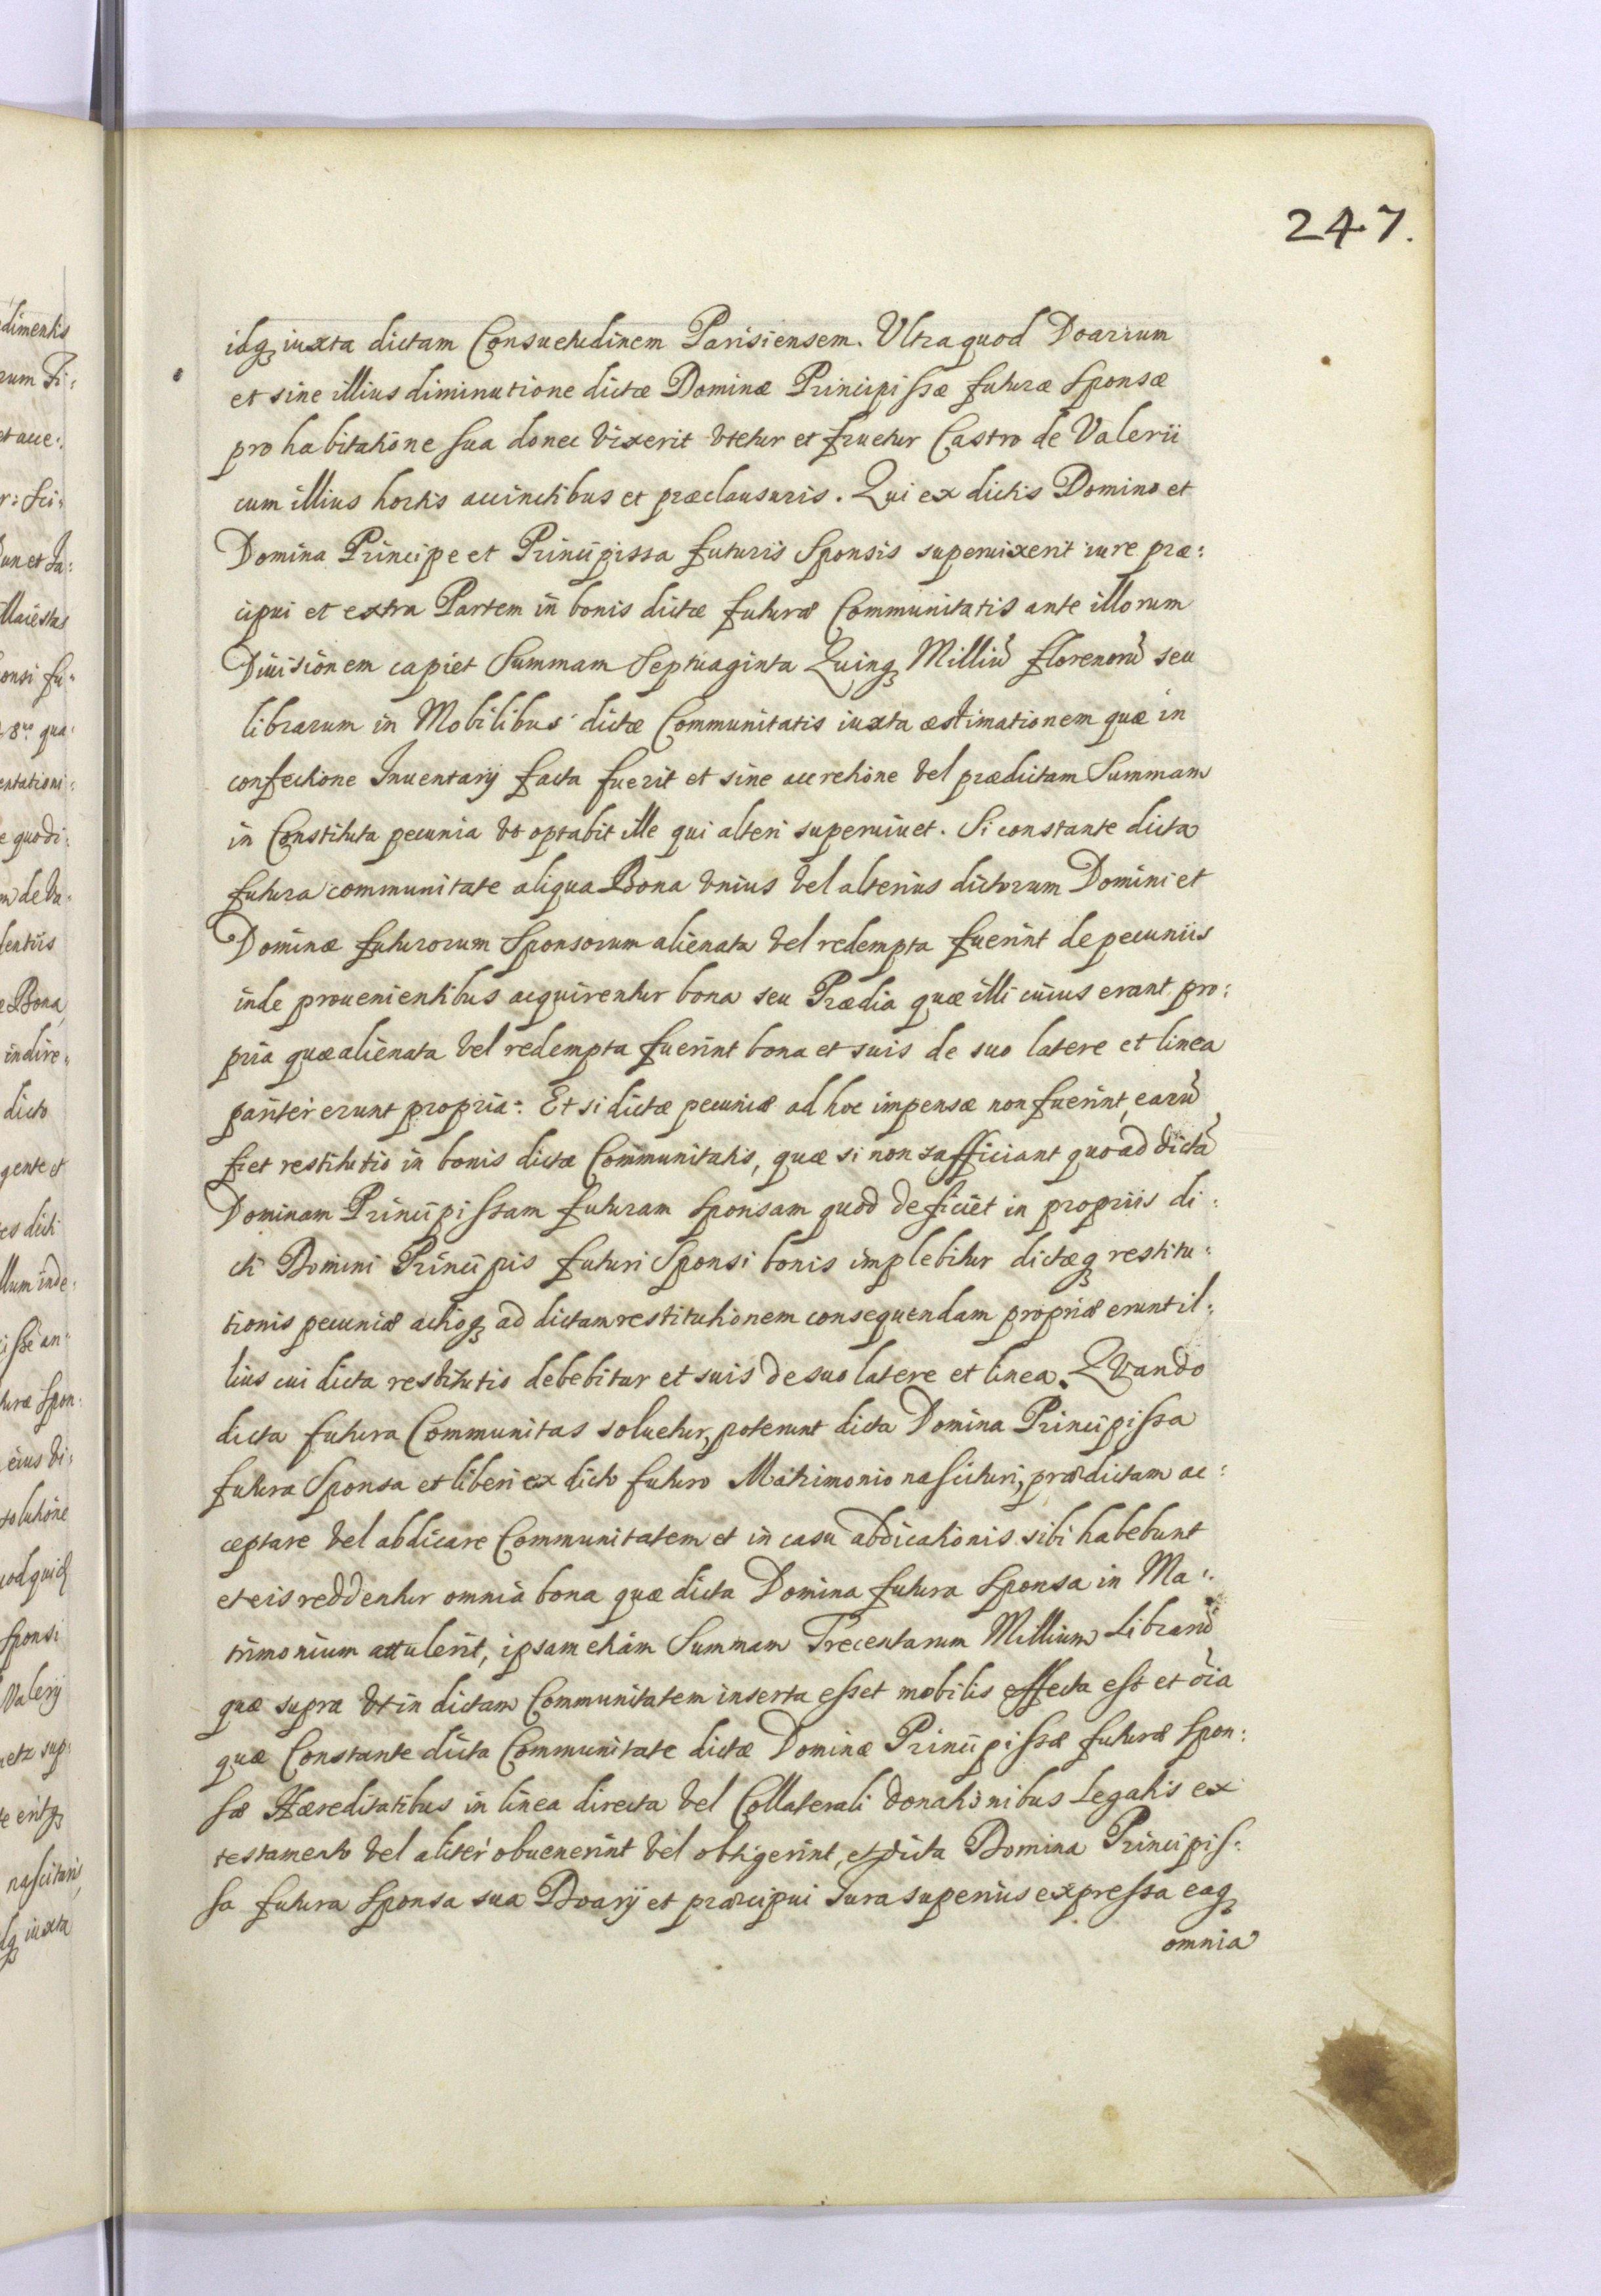 247.
idq₃ iuxta dictam Consuetudinem Parisiensem. Vltra quod Doarium
et sine illius diminutione dictæ Dominæ Principissæ futuræ Sponsæ
pro habitatione sua donec vixerit vtetur et fruetur Castro de Valerii
cum illius hortis accinctibus et præclausuris. Qui ex dictis Domino et
Domina Principe et Principissa futuris Sponsis superuixerit iure præ:
cipui et extra Partem in bonis dictæ futuræ Communitatis ante illorum
Diuisionem capiet Summam Septuaginta Quinq₃ Milliū florenorū seu
librarum in Mobilibus dictæ Communitatis iuxta æstimationem quæ in
confectione Inuentarij facta fuerit et sine accretione vel prædictam Summam
in Constituta pecunia vt optabit ille qui alteri superuiuet. Si constante dicta
futura communitate aliqua Bona vnius vel alterius dictorum Domini et
Dominæ futurorum Sponsorum alienata vel redempta fuerint de pecuniis
inde prouenientibus acquirentur bona seu Prædia quæ illi cuius erant pro:
pria quæ alienata vel redempta fuerint bona et suis de suo latere et linea
pariter erunt propria: Et si dictæ pecuniæ ad hoc impensæ non fuerint, earū
fiet restitutio in bonis dictæ Communitatis, quæ si non sufficiant quoad dictā
Dominam Principissam futuram Sponsam quod deficiet in propriis di:
cti Domini Principis futuri Sponsi bonis implebitur dictæq₃ restitu:
tionis pecuniæ actioq₃ ad dictam restitutionem consequendam propriæ erunt il:
lius cui dicta restitutio debebitur et suis de suo latere et linea. Qvando
dicta futura Communitas soluetur, poterunt dicta Domina Principissa
futura Sponsa et liberi ex dicto futuro Matrimonio nascituri, prædictam ac:
ceptare vel abdicare Communitatem et in casu abdicationis sibi habebunt
et eis reddentur omnia bona quæ dicta Domina futura Sponsa in Ma:
trimonium attulerit, ipsam etiam Summam Trecentarum Millium Librarū
quæ supra vt in dictam Communitatem inserta esset mobilis effecta est et oīa
quæ Constante dicta Communitate dictæ Dominæ Principissæ futuræ Spon:
sæ Hæreditatibus in linea directa vel Collaterali donationibus Legatis ex
testamento vel aliter obuenerint vel obtigerint, et dicta Domina Principis:
sa futura Sponsa sua Doarij et præcipui Iura superius expressa eaq₃
omnia